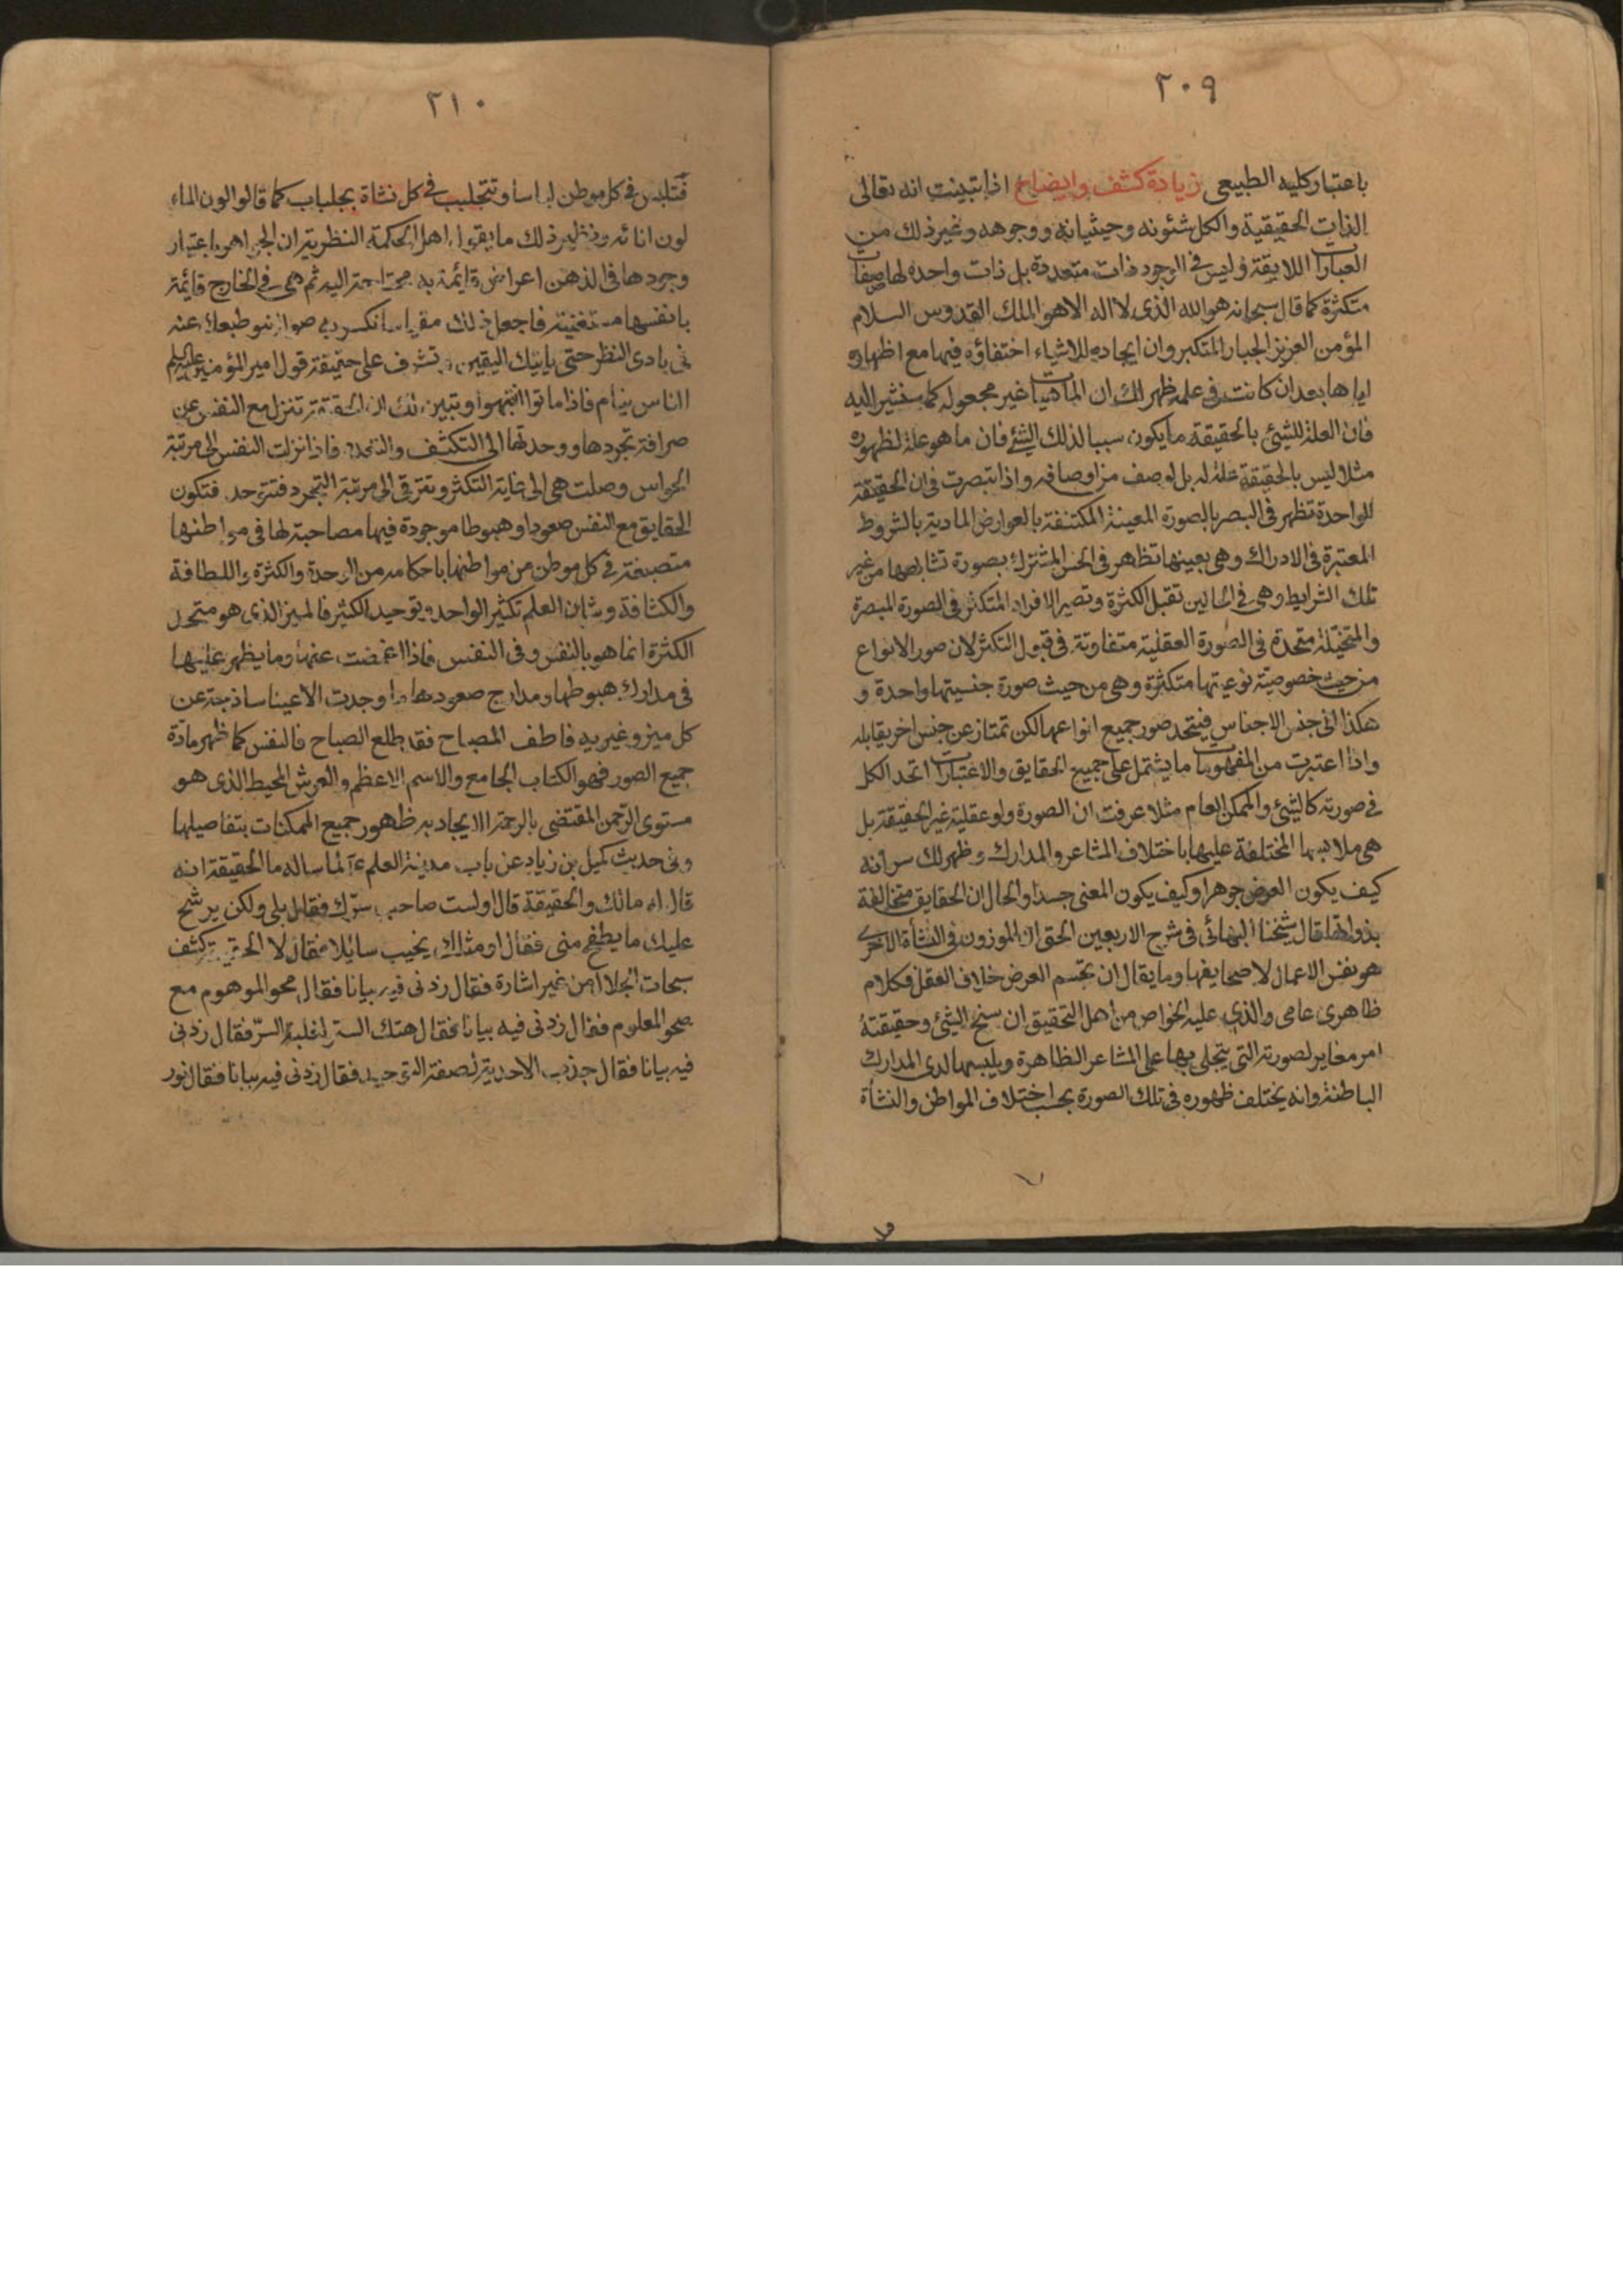 ٢٠٩
باعتبار كليه الطبيعى زيادة كشف وايضاح اذا تبينت انه تعالى
الذات الحقيقية والكل شئونه وحيثياته ووجوهه وغير ذلك من
العبارات اللايقة وليس فى الوجود ذات متعددة بل ذات واحده لها صفات
متكثرة كما قال سبحانه هو الله الذى لا اله الا هو الملك القدوس السلام
المؤمن العزيز الجبار المتكبر وان ايجاده للاشياء اختفاؤه فيها مع اظهاره
اياها بعد ان كانت فى علمه ظهر لك ان الماهيات غير مجعوله كما سنشير اليه
فان العلة للشيئ بالحقيقة ما يكون سببا لذلك الشئ فان ما هو علة لظهوره
مثلا ليس بالحقيقة علة له بل لوصف من اوصافه واذا تبصرت فى ان الحقيقة
الواحدة تظهر فى البصر بالصورة المعينة المكتنفة بالعوارض المادية بالشروط
المعتبرة فى الادراك وهى بعينها تظاهر فى الحس المشترك بصورة تشابهها من غير
تلك الشرايط وهى فى الحالين تقبل الكثرة وتصير الافراد المتكثرة فى الصورة المبصرة
والمتخيلة متحدة فى الصورة العقلية متفاوتة فى قبول التكثر لان صور الانواع
من حيث خصوصية نوعيتها متكثرة وهى من حيث صورة جنسيتها واحدة و
هكذا الى جنس الاجناس فيتحد صور جميع انواعها لكن تمتاز عن جنس اخر يقابله
واذا اعتبرت من المفهومات ما يشتمل على جميع الحقايق والاعتبارات اتحد الكل
فى صورته كالشيئ والممكن العام مثلا عرفت ان الصورة ولو عقلية غير الحقيقة بل
هى ملابسها المختلفة عليها باختلاف المشاعر والمدارك وظهر لك سر انه
كيف يكون العرض جوهرا وكيف يكون المعنى جسدا والحال ان الحقايق متخالفة
بذواتها قال شيخنا البهائى فى شرح الاربعين الحق ان الموزون فى النشأة الاخرى
هو نفس الاعمال لا صحايفها وما يقال ان تجسم العرض خلاف العقل فكلام
ظاهرى عامى والذى عليه الخواص من اهل التحقيق ان سنخ الشيئ وحقيقته
امر مغاير لصورته التى يتجلى بها على المشاعر الظاهرة ويلبسها لدى المدارك
الباطنة وانه يختلف ظهوره فى تلك الصورة بحسب اختلاف المواطن والنشأة
٢١٠
فتلبس فى كل موطن لباسا وتتجلبب فى كل نشاة بجلباب كما قالوا لون الماء
لون انائه ونظير ذلك ما يقوله اهل الحكمة النظرية ان الجواهر باعتبار
وجودها فى الذهن اعراض قائمة به محتاجة اليه ثم هى فى الخارج قايمة
بانفسها مستغنية فاجعل ذلك مقياسا نكسر به صولة نبو طبعك عنه
فى بادى النظر حتى ياتيك اليقين وتشرف على حقيقة قول امير المؤمنين عليه السلم
الناس نيام فاذا ماتوا انتبهوا وتبين لك ان الحقيقة تتنزل مع النفس عن
صرافة تجردها ووحدتها الى التكشف والتعدد فاذا نزلت النفس الى مرتبة
الحواس وصلت هى الى غاية التكثر وتترقى الى مرتبة التجرد فتتوحد فتكون
الحقايق مع النفس صعودا وهبوطا موجودة فيها مصاحبة لها فى مواطنها
منصبغة فى كل موطن من مواطنها باحكامه من الوحدة والكثرة واللطافة
والكثافة وشان العلم تكثير الواحد وتوحيد الكثير فالميز الذى هو
الكثرة انما هو بالنفس وفى النفس فاذا اغمضت عنها وما يظهر عليها
فى مدارك هبوطها ومدارج صعودها وجدت الاعيان ساذجة عن
كل ميز وغيرية فاطف المصباح فقد طلع الصباح فالنفس كما ظهر مادة
جميع الصور فهو الكتاب الجامع والاسم الاعظم والعرش المحيط الذى هو
مستوى الرحمن المقتضى بالرحمة الايجادية ظهور جميع الممكنات بتفاصيلها
وفى حديث كميل بن زياد عن باب مدينة العلم ع لما ساله ما الحقيقة انه
قال له مالك والحقيقة قال اولست صاحب سرك فقال بلى ولكن يرشح
عليك ما يطفح منى فقال او مثلك يخيب سايلا فقال الحقيقة كشف
سبحات الجلال من غير اشارة فقال زدنى فيه بيانا فقال محو الموهوم مع
صحو المعلوم فقال زدنى فيه بيانا فقال هتك الستر لغلبة السر فقال زدنى
فيه بيانا فقال جذب الاحدية لصفة التوحيد فقال زدنى فيه بيانا فقال نور